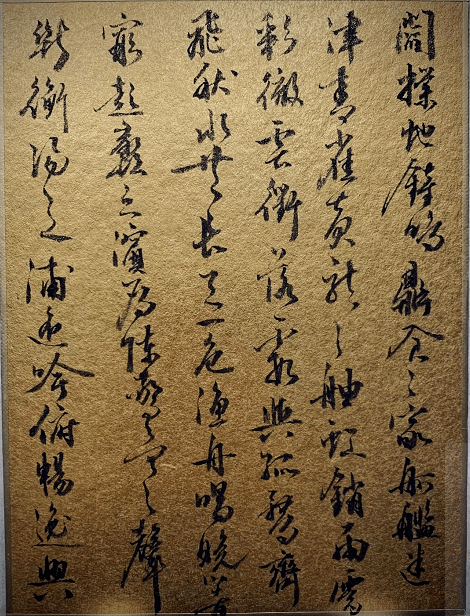 閻撲地鐘鳴鼎食之家舸艦迷
津青雀黄龍之舳虹銷雨霽
彩徹雲衢落霞與孤鶩齊
飛秋水共長天一色漁舟唱晚響
窮彭蠡之濱雁陣驚寒之聲
斷衡陽之浦遥吟俯暢逸興